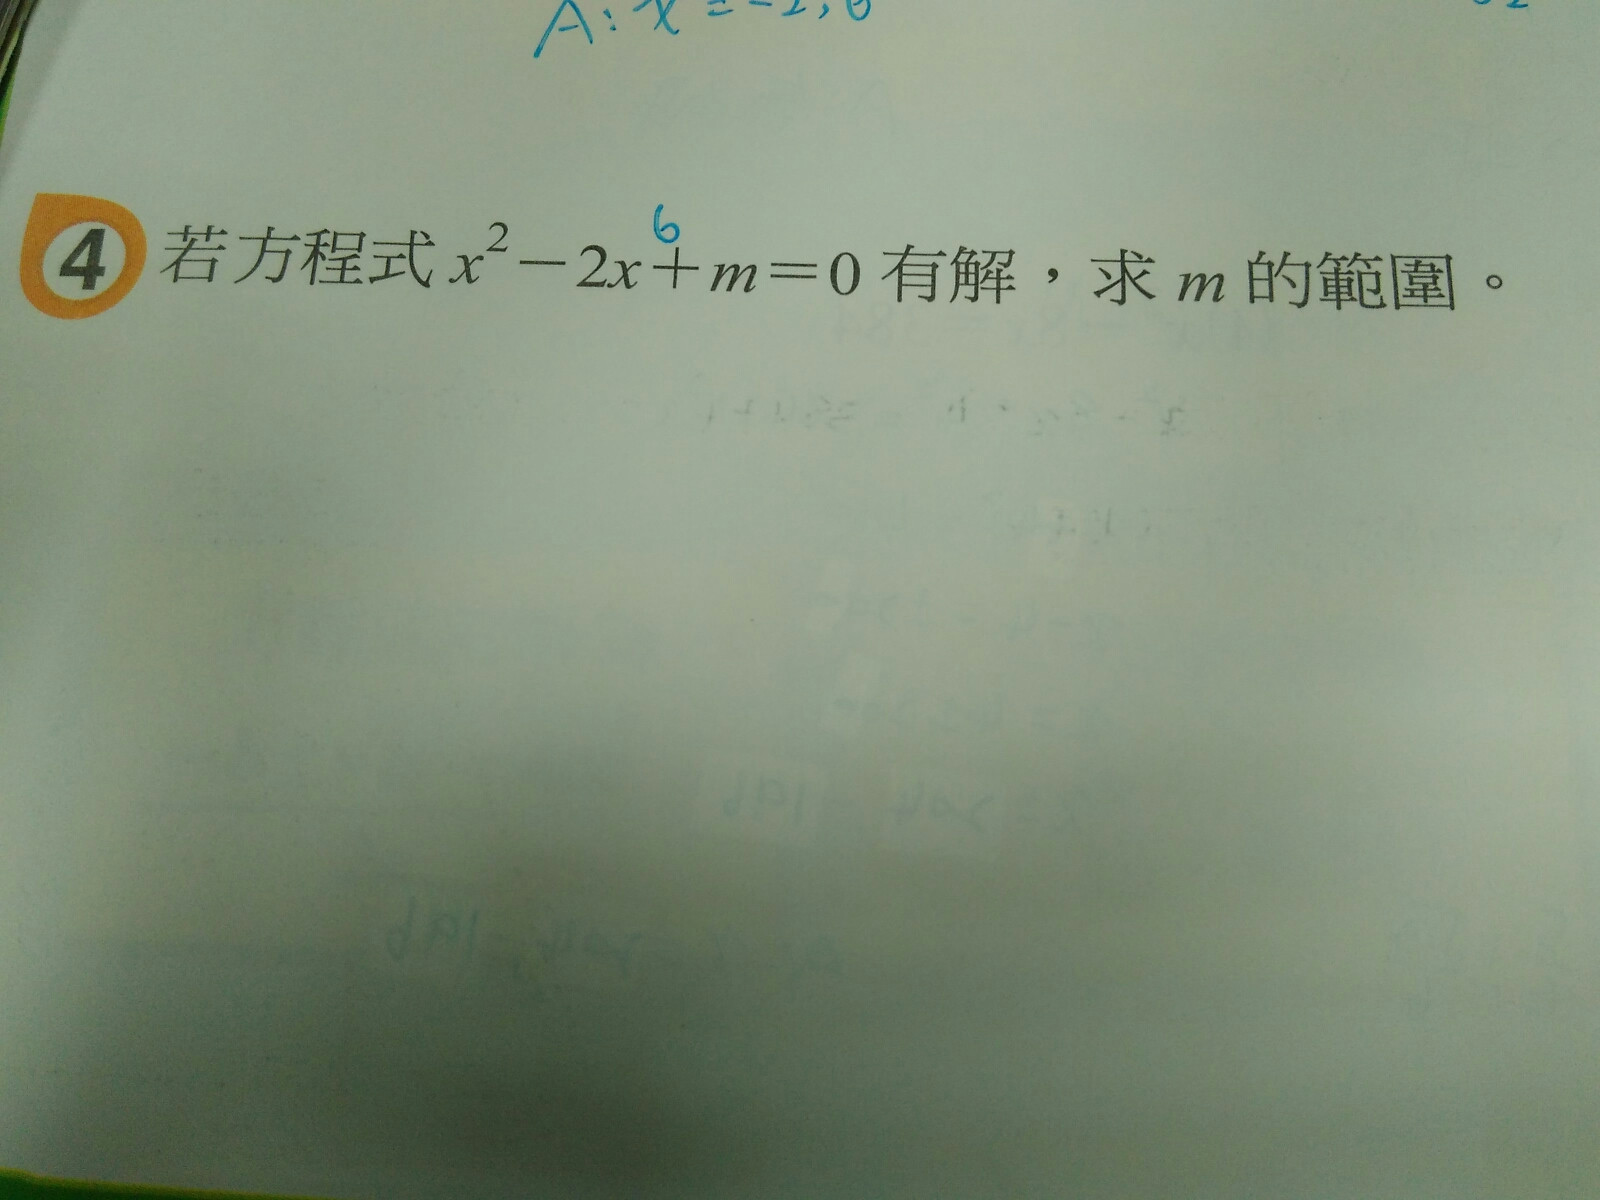 A: x = -2, 6
6
4 若方程式 x²－2x＋m＝0 有解，求 m 的範圍。